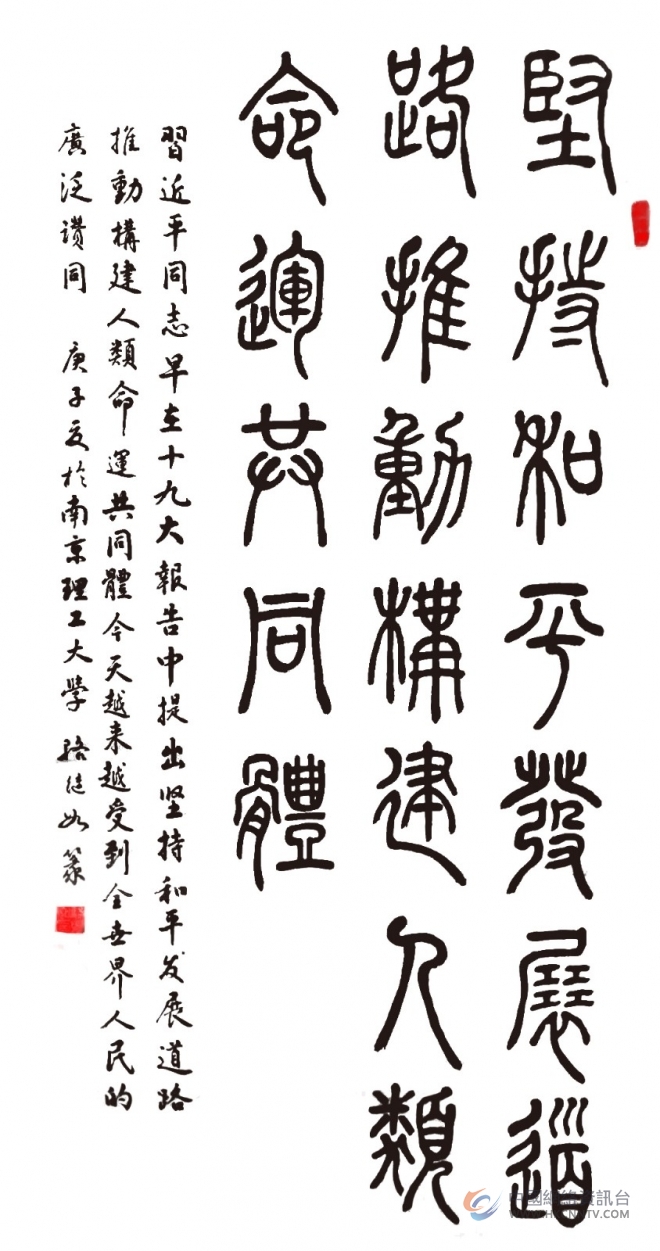 堅持和平發展道
路推動構建人類
命運共同體
習近平同志早在十九大報告中提出坚持和平发展道路
推動構建人類命運共同體今天越来越受到全世界人民的
廣泛讚同 庚子夏於南京理工大學 駱 如篆
中國網絡資訊台